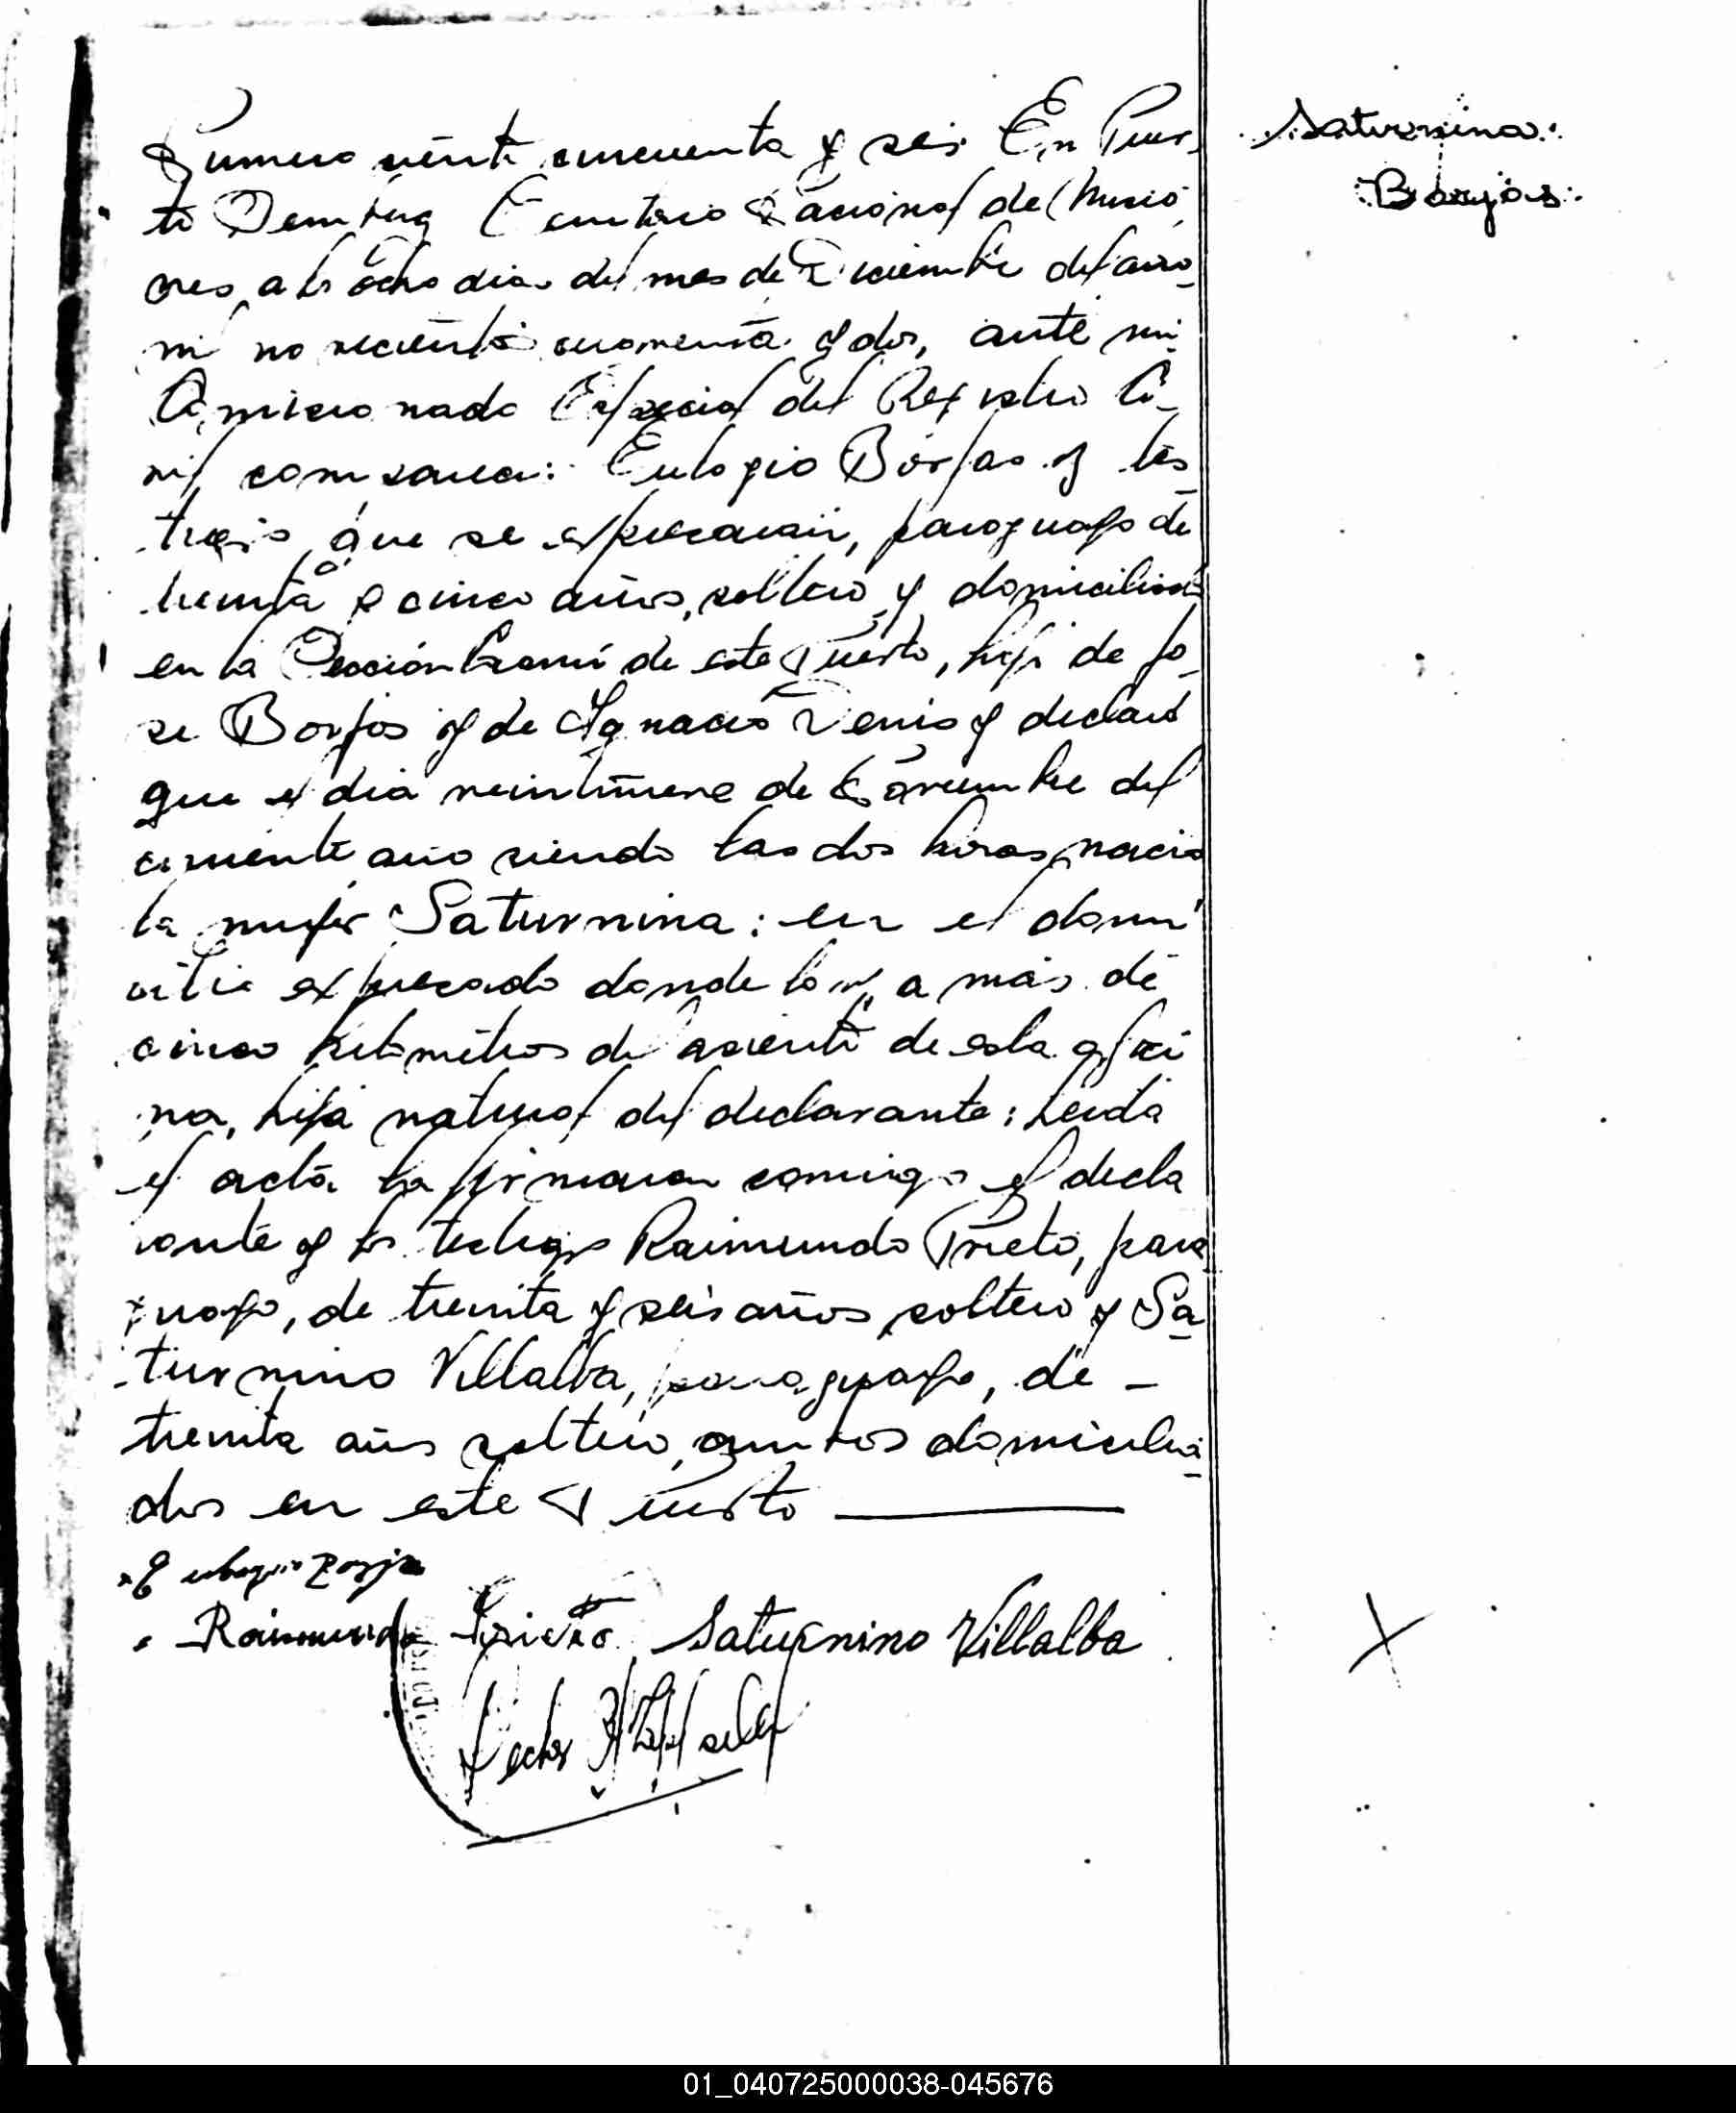 Saturnina
Borjas
Numero ciento cincuenta y seis En Puer-
to Bemberg Territorio Nacional de Misio-
nes a los ocho dias del mes de Diciembre del año
mil novecientos cuarenta y dos, ante mi
Comisionado Especial del Registro Ci-
vil comparece: Eulogio Borjas y tes-
tigos que se expresaran, paraguayo de
treinta y cinco años, soltero y domiciliado
en la Sección de este Puerto, hijo de Jo-
se Borjas y de Ignacia Denis y declaró
que el dia veintinueve de Noviembre del
corriente año siendo las dos horas, nacio
la mujer Saturnina: en el domi
cilio expresado donde la a más de
cinco kilometros del asiento de esta ofici
na, hija natural del declarante: Leida
el acta la firmaron conmigo el decla
rante y los testigos Raimundo Prieto, para
guayo, de treinta y seis años, soltero y Sa-
turnino Villalba, paraguayo, de -
treinta años soltero, ambos domicilia-
dos en este Puerto
Eulogio Borja
Raimundo Prieto Saturnino Villalba
01_040725000038-045676